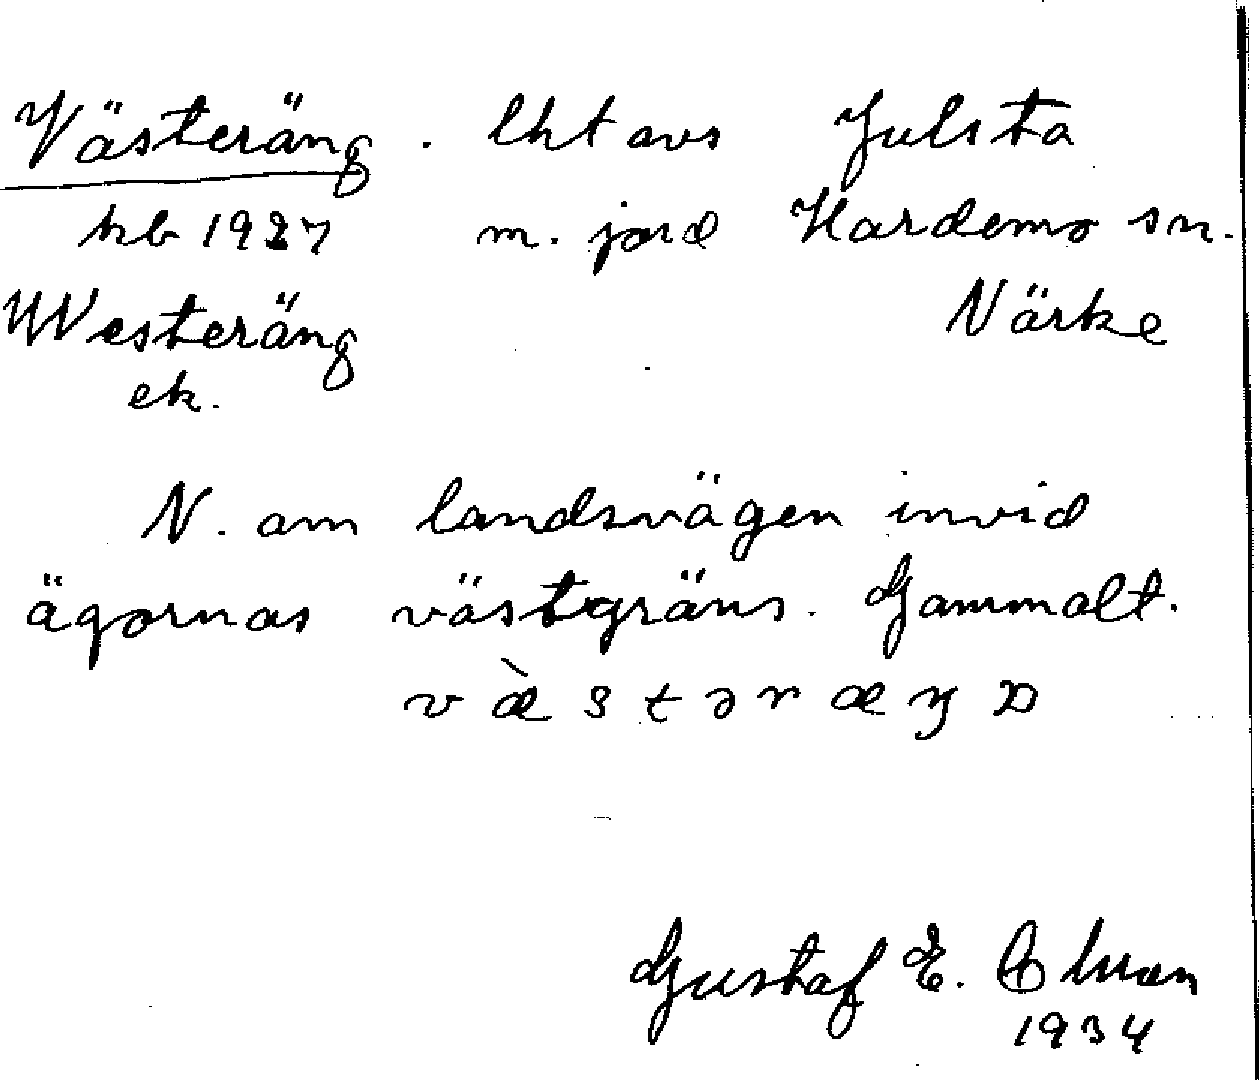 Västeräng. lht avs Julsta
hb 1927 m. jord Hardemo sn.
Westeräng Närke
ek.
N. om landsvägen invid
ägornas västgräns. Gammalt.
væ̀stəræŋ
Gustaf E.
1934